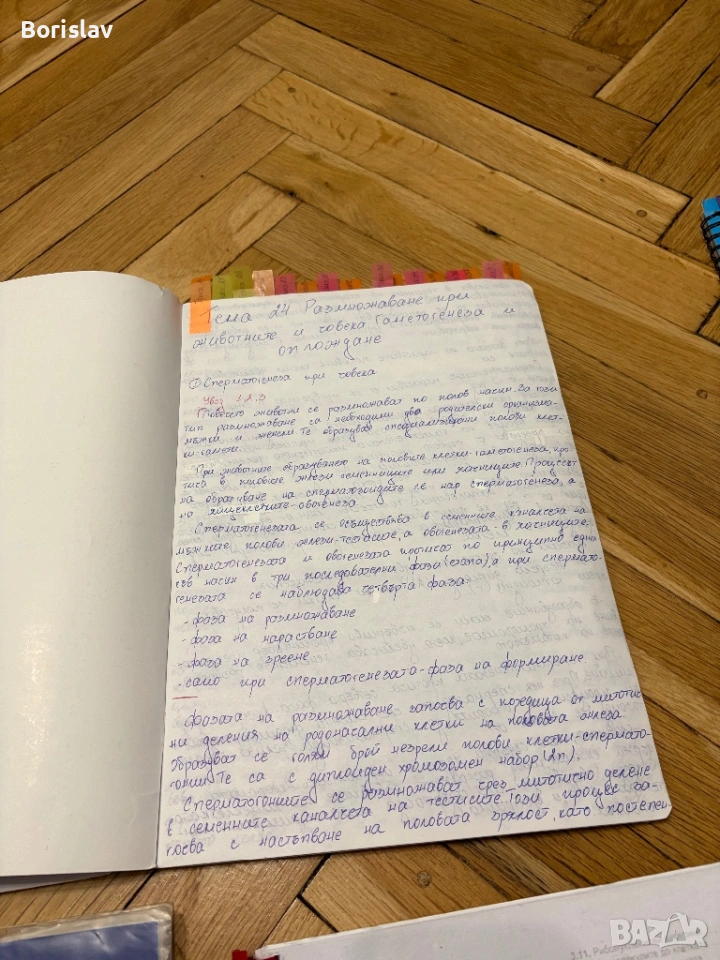 Borislav
Тема 24 Размножаване при
животните и човека Гаметогенеза и
оплождане
① Сперматогенеза при човека
Увод 1.2.3
Повечето животни се размножават по полов начин. За този
тип размножаване са необходими два родителски организма-
мъжки и женски. Те образуват специализирани полови клет-
ки-гамети.
При животните образуването на половите клетки-гаметогенеза, про-
тича в половите жлези семенниците или яйчниците. Процесът
на образуване на сперматозоидите се нар. сперматогенеза, а
на яйцеклетките-овогенеза.
Сперматогенезата се осъществява в семенните каналчета на
мъжките полови жлези-тестисите, а овогенезата-в яйчниците.
Сперматогенезата и овогенезата протичат по принципно един
същ начин в три последователни фази(етапа), а при спермато-
генезата се наблюдава четвърта фаза:
-фаза на размножаване
-фаза на нарастване
-фаза на зреене
-само при сперматогенезата-фаза на формиране
Фазата на размножаване започва с поредица от митотич-
ни деления на родоначални клетки на половата жлеза.
Образуват се голям брой незрели полови клетки-спермато-
гонии. Те са с диплоиден хромозомен набор (2n).
Сперматогониите се размножават чрез митотично делене
в семенните каналчета на тестисите. Този процес за-
почва с настъпване на половата зрялост, като постепен
BAZAR
2.11.